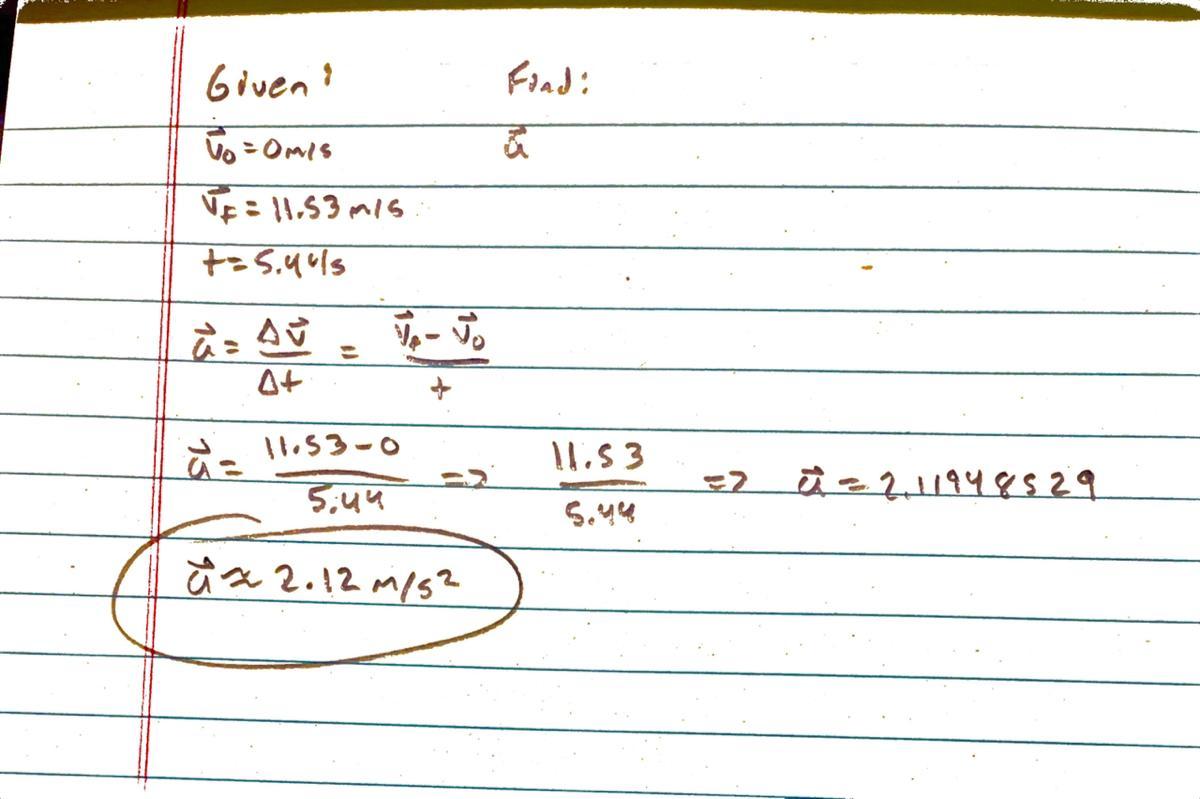 Given: Find:
v⃗₀ = 0 m/s a⃗
v⃗F = 11.53 m/s
t = 5.44/s
a⃗ = Δv⃗/Δt = (v⃗F - v⃗₀)/t
a⃗ = (11.53 - 0)/5.44 => 11.53/5.44 => a⃗ = 2.11948529
a⃗ ≈ 2.12 m/s²